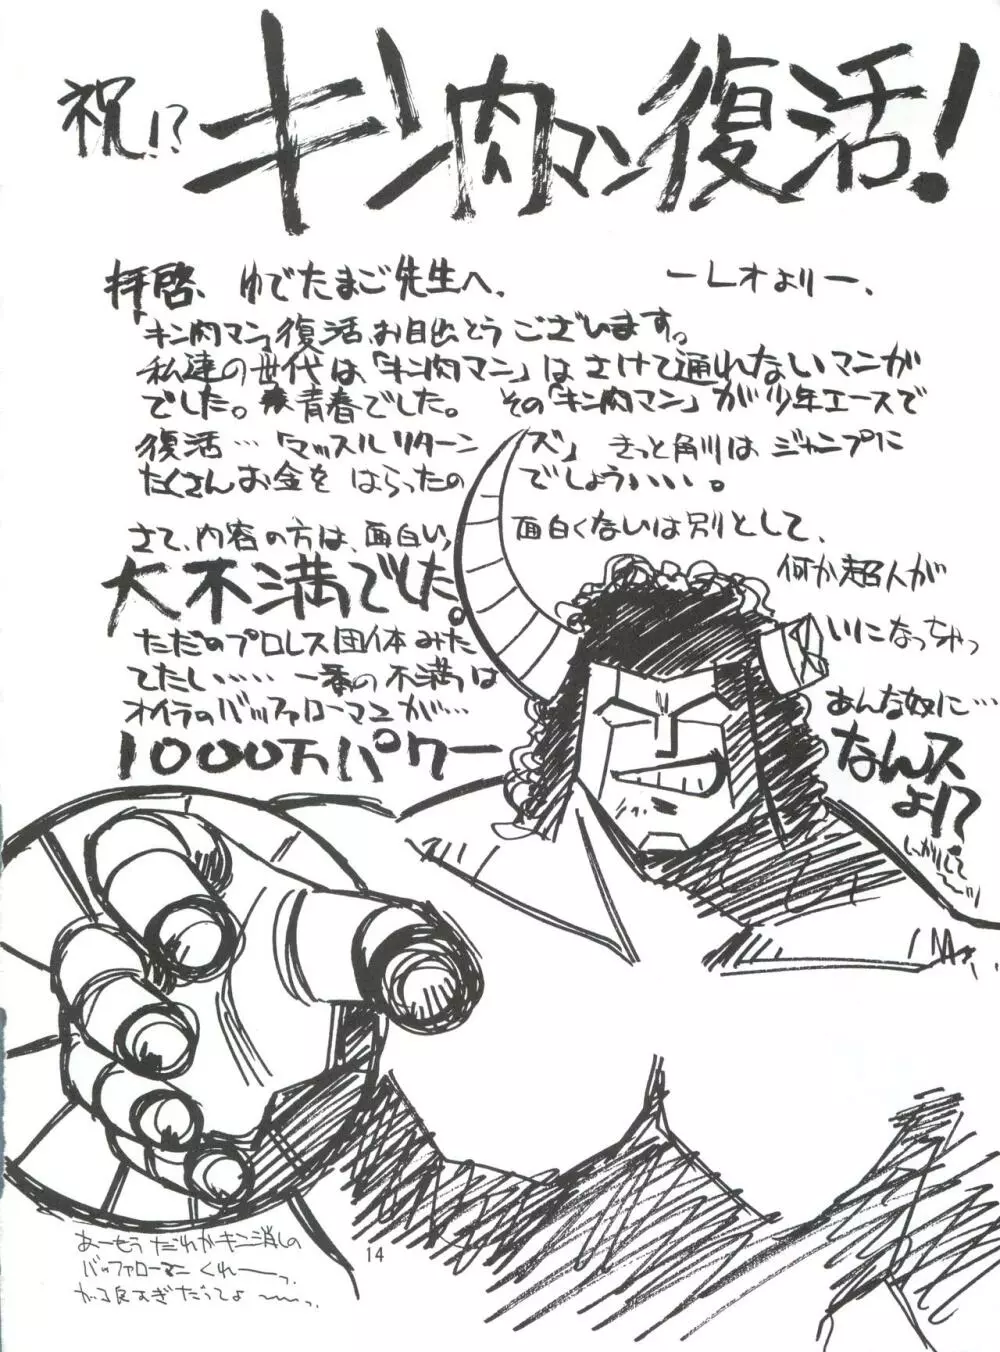 祝!? キン肉マン復活!
拝啓、ゆでたまご先生へ。 ーLオよりー、
「キン肉マン」復活、お目出とうございます。
私達の世代は、「キン肉マン」はさけて通れないマンガ
でした。青春でした。 その「キン肉マン」が少年エースで
復活…「マッスルリターンズ」きっと角川はジャンプに
たくさんお金をはらったのでしょうぃぃぃ。
さて、内容の方は、面白い、面白くないは別として、
大不満でした。 何か超人が
ただのプロレス団体みたいになっちゃっ
てたしぃ… 一番の不満は
オイラのバッファローマンが… あんな奴に…
1000万パワー なんスよ!?
しっかりして〜
あーもう だれかキン消しの
バッファローマン くれーっ、
14